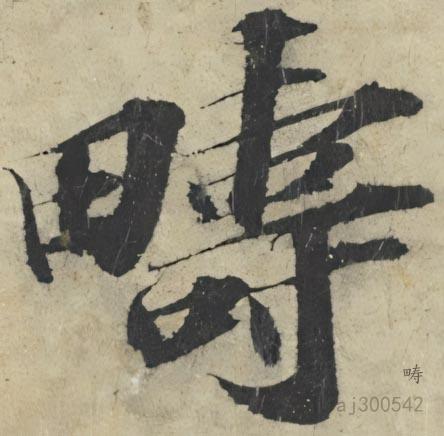 疇
畴
aj300542